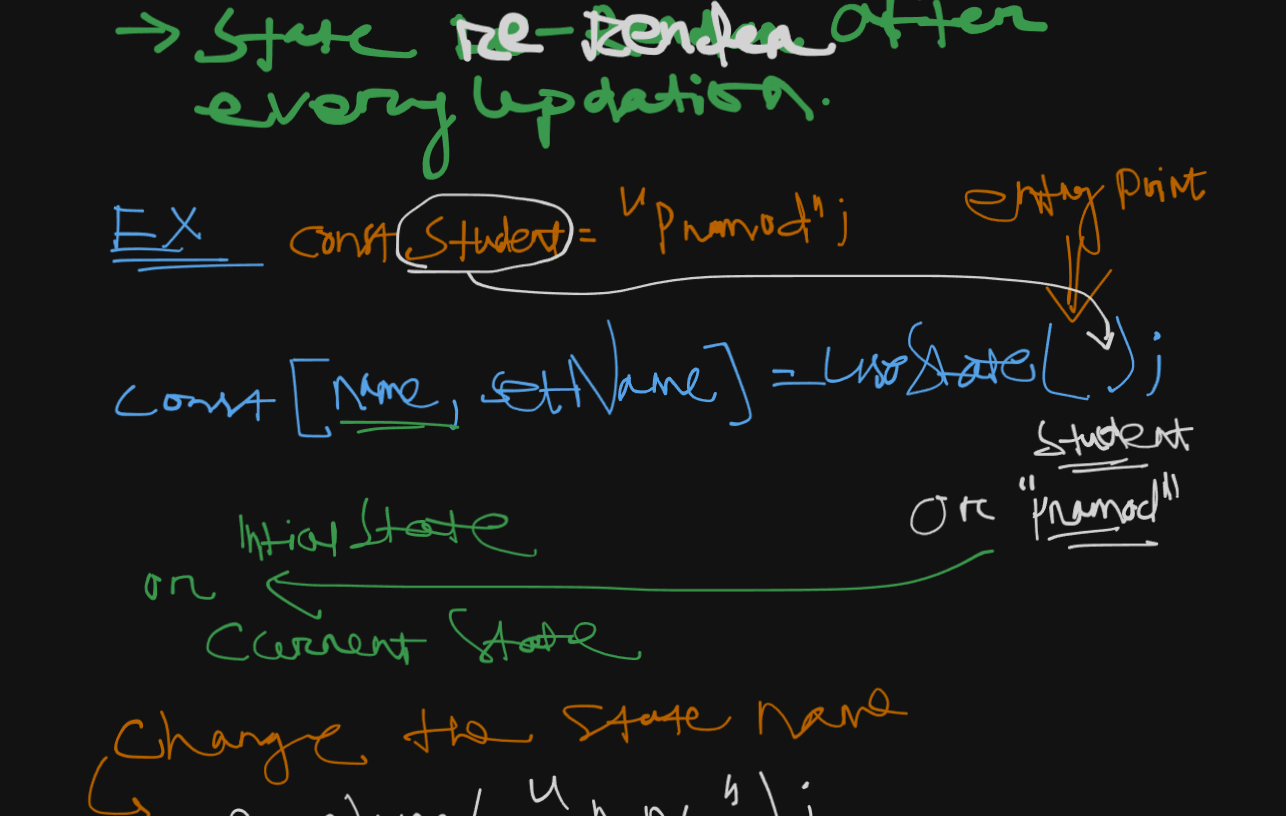 → State Re-Render after
every updation.
entry point
EX const Student = "Pramod";
const [name, setName] = useState( );
Student
or "Pramod"
Intial State
or
Current State
Change the state name